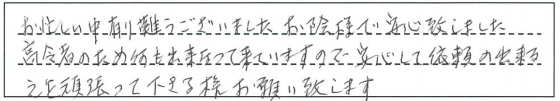 お忙しい中有り難うございました お陰様で安心致しました
高令者のため何も出来なって来ていますので安心して依頼の出来る
えを頑張って下さる様お願い致します